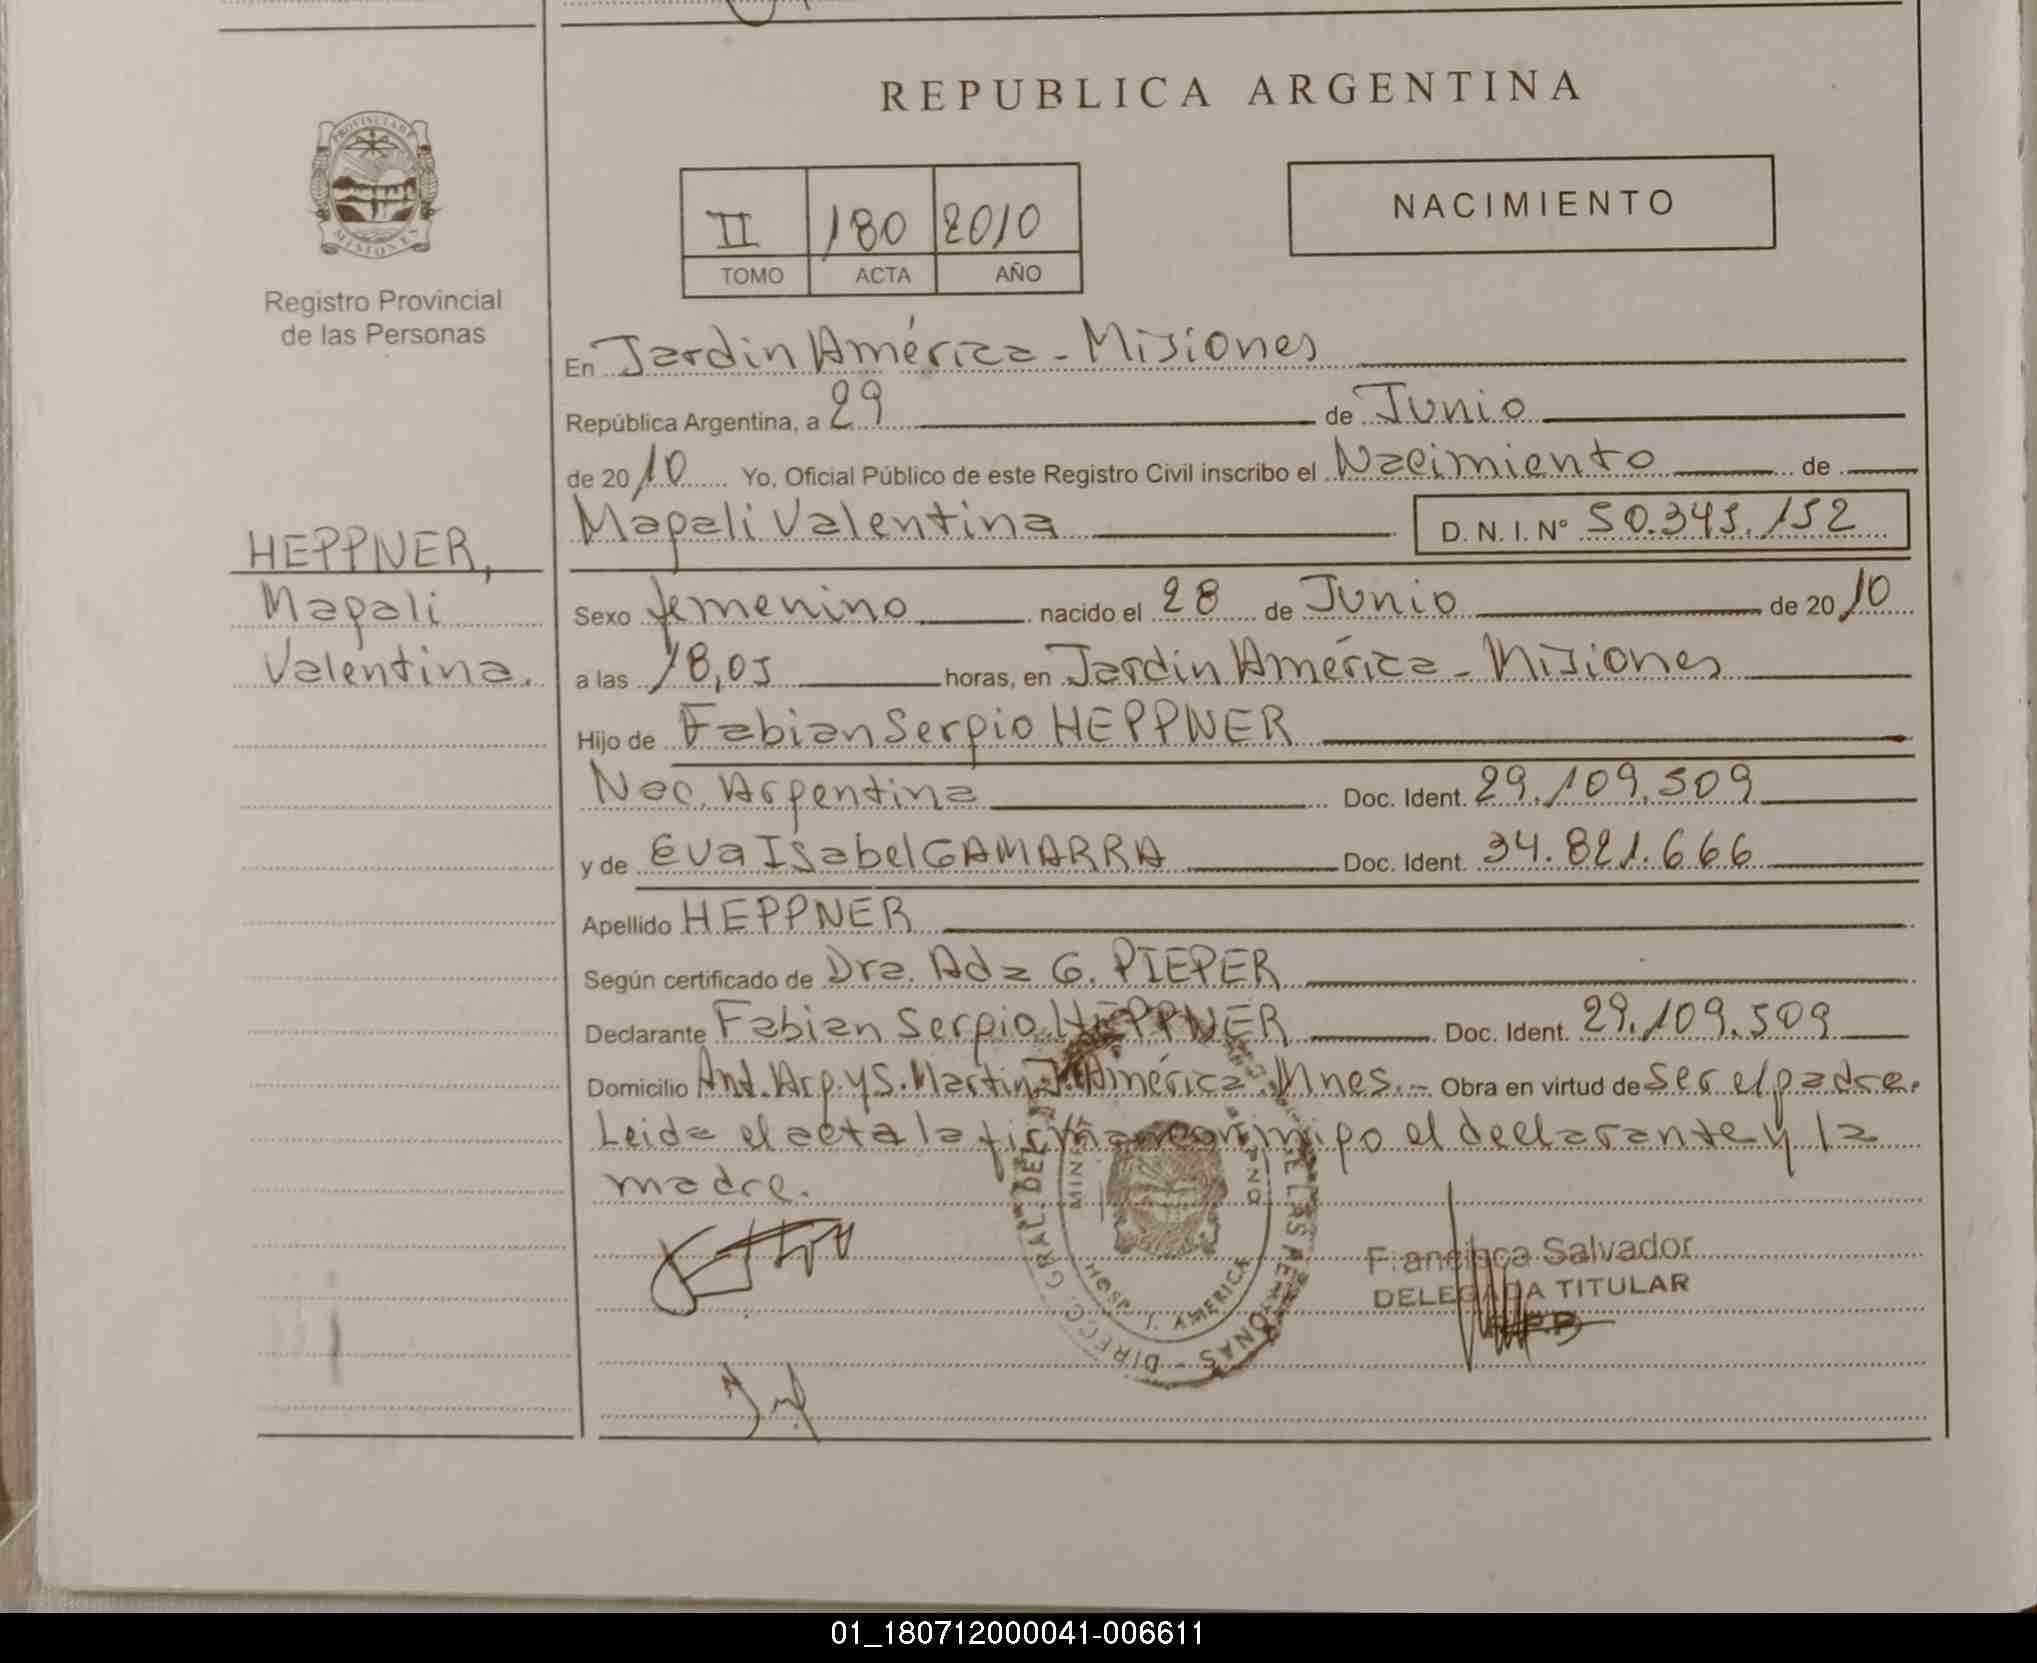 REPUBLICA ARGENTINA
PROVINCIA DE
MISIONES
Registro Provincial
de las Personas
II 180 2010
TOMO ACTA AÑO
NACIMIENTO
En Jardin América - Misiones
República Argentina, a 29 de Junio
de 2010 Yo, Oficial Público de este Registro Civil inscribo el Nacimiento de
Magali Valentina D. N. I. N° 50.345.152
HEPPNER,
Magali
Valentina.
Sexo femenino nacido el 28 de Junio de 2010
a las 18,05 horas, en Jardin América - Misiones
Hijo de Fabian Sergio HEPPNER
Nac. Argentina Doc. Ident. 29.109.509
y de Eva Isabel GAMARRA Doc. Ident. 34.821.666
Apellido HEPPNER
Según certificado de Dra. Ada G. PIEPER
Declarante Fabian Sergio HEPPNER Doc. Ident. 29.109.509
Domicilio Ant. Arg. y S. Martin J. América. Mnes. - Obra en virtud de ser el padre.
Leida el acta la firman conmigo el declarante y la
madre.
Francisca Salvador
DELEGADA TITULAR
R.P.P
DIRECC. GRAL. DEL DE LAS PERSONAS
HOSP. J. AMERICA
01_180712000041-006611